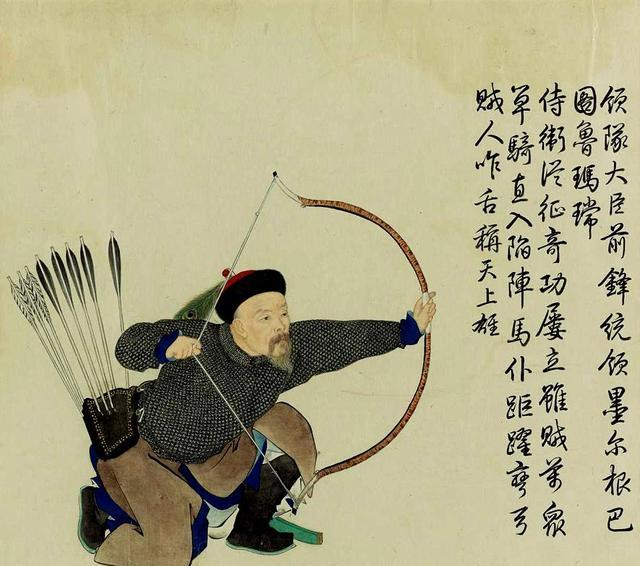 領隊大臣前鋒統領墨尔根巴
圖魯瑪瑺
侍衛從征奇功屢立雖賊萬衆
單騎直入陷陣馬仆距躍彎弓
賊人咋舌稱天上雄